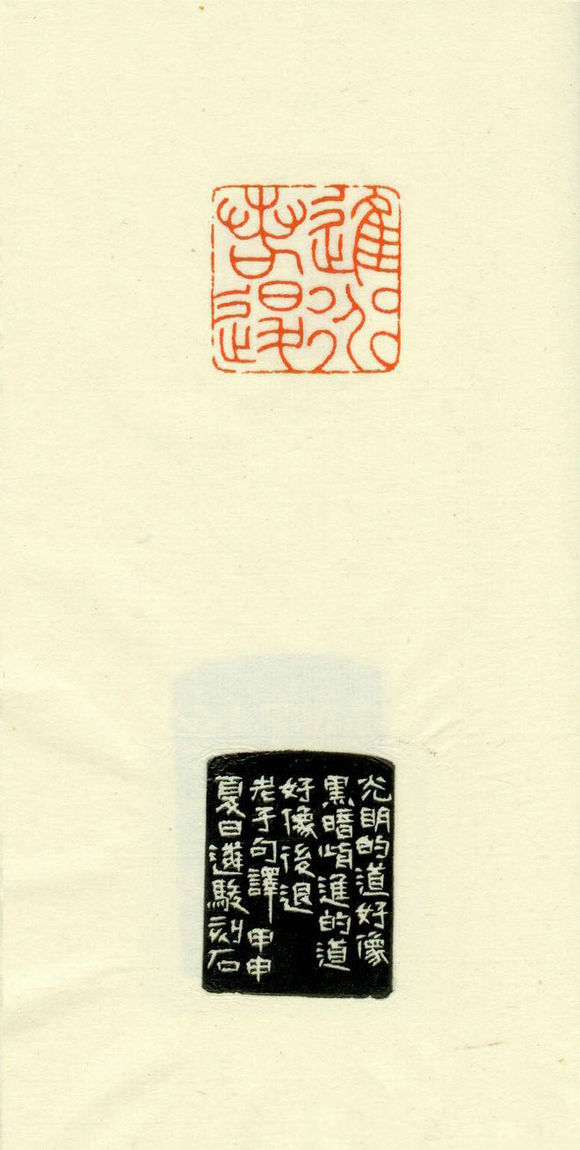 進道
若退
光明的道好像
黑暗前進的道
好像後退
老子句譯 甲申
夏日遴駿刻石